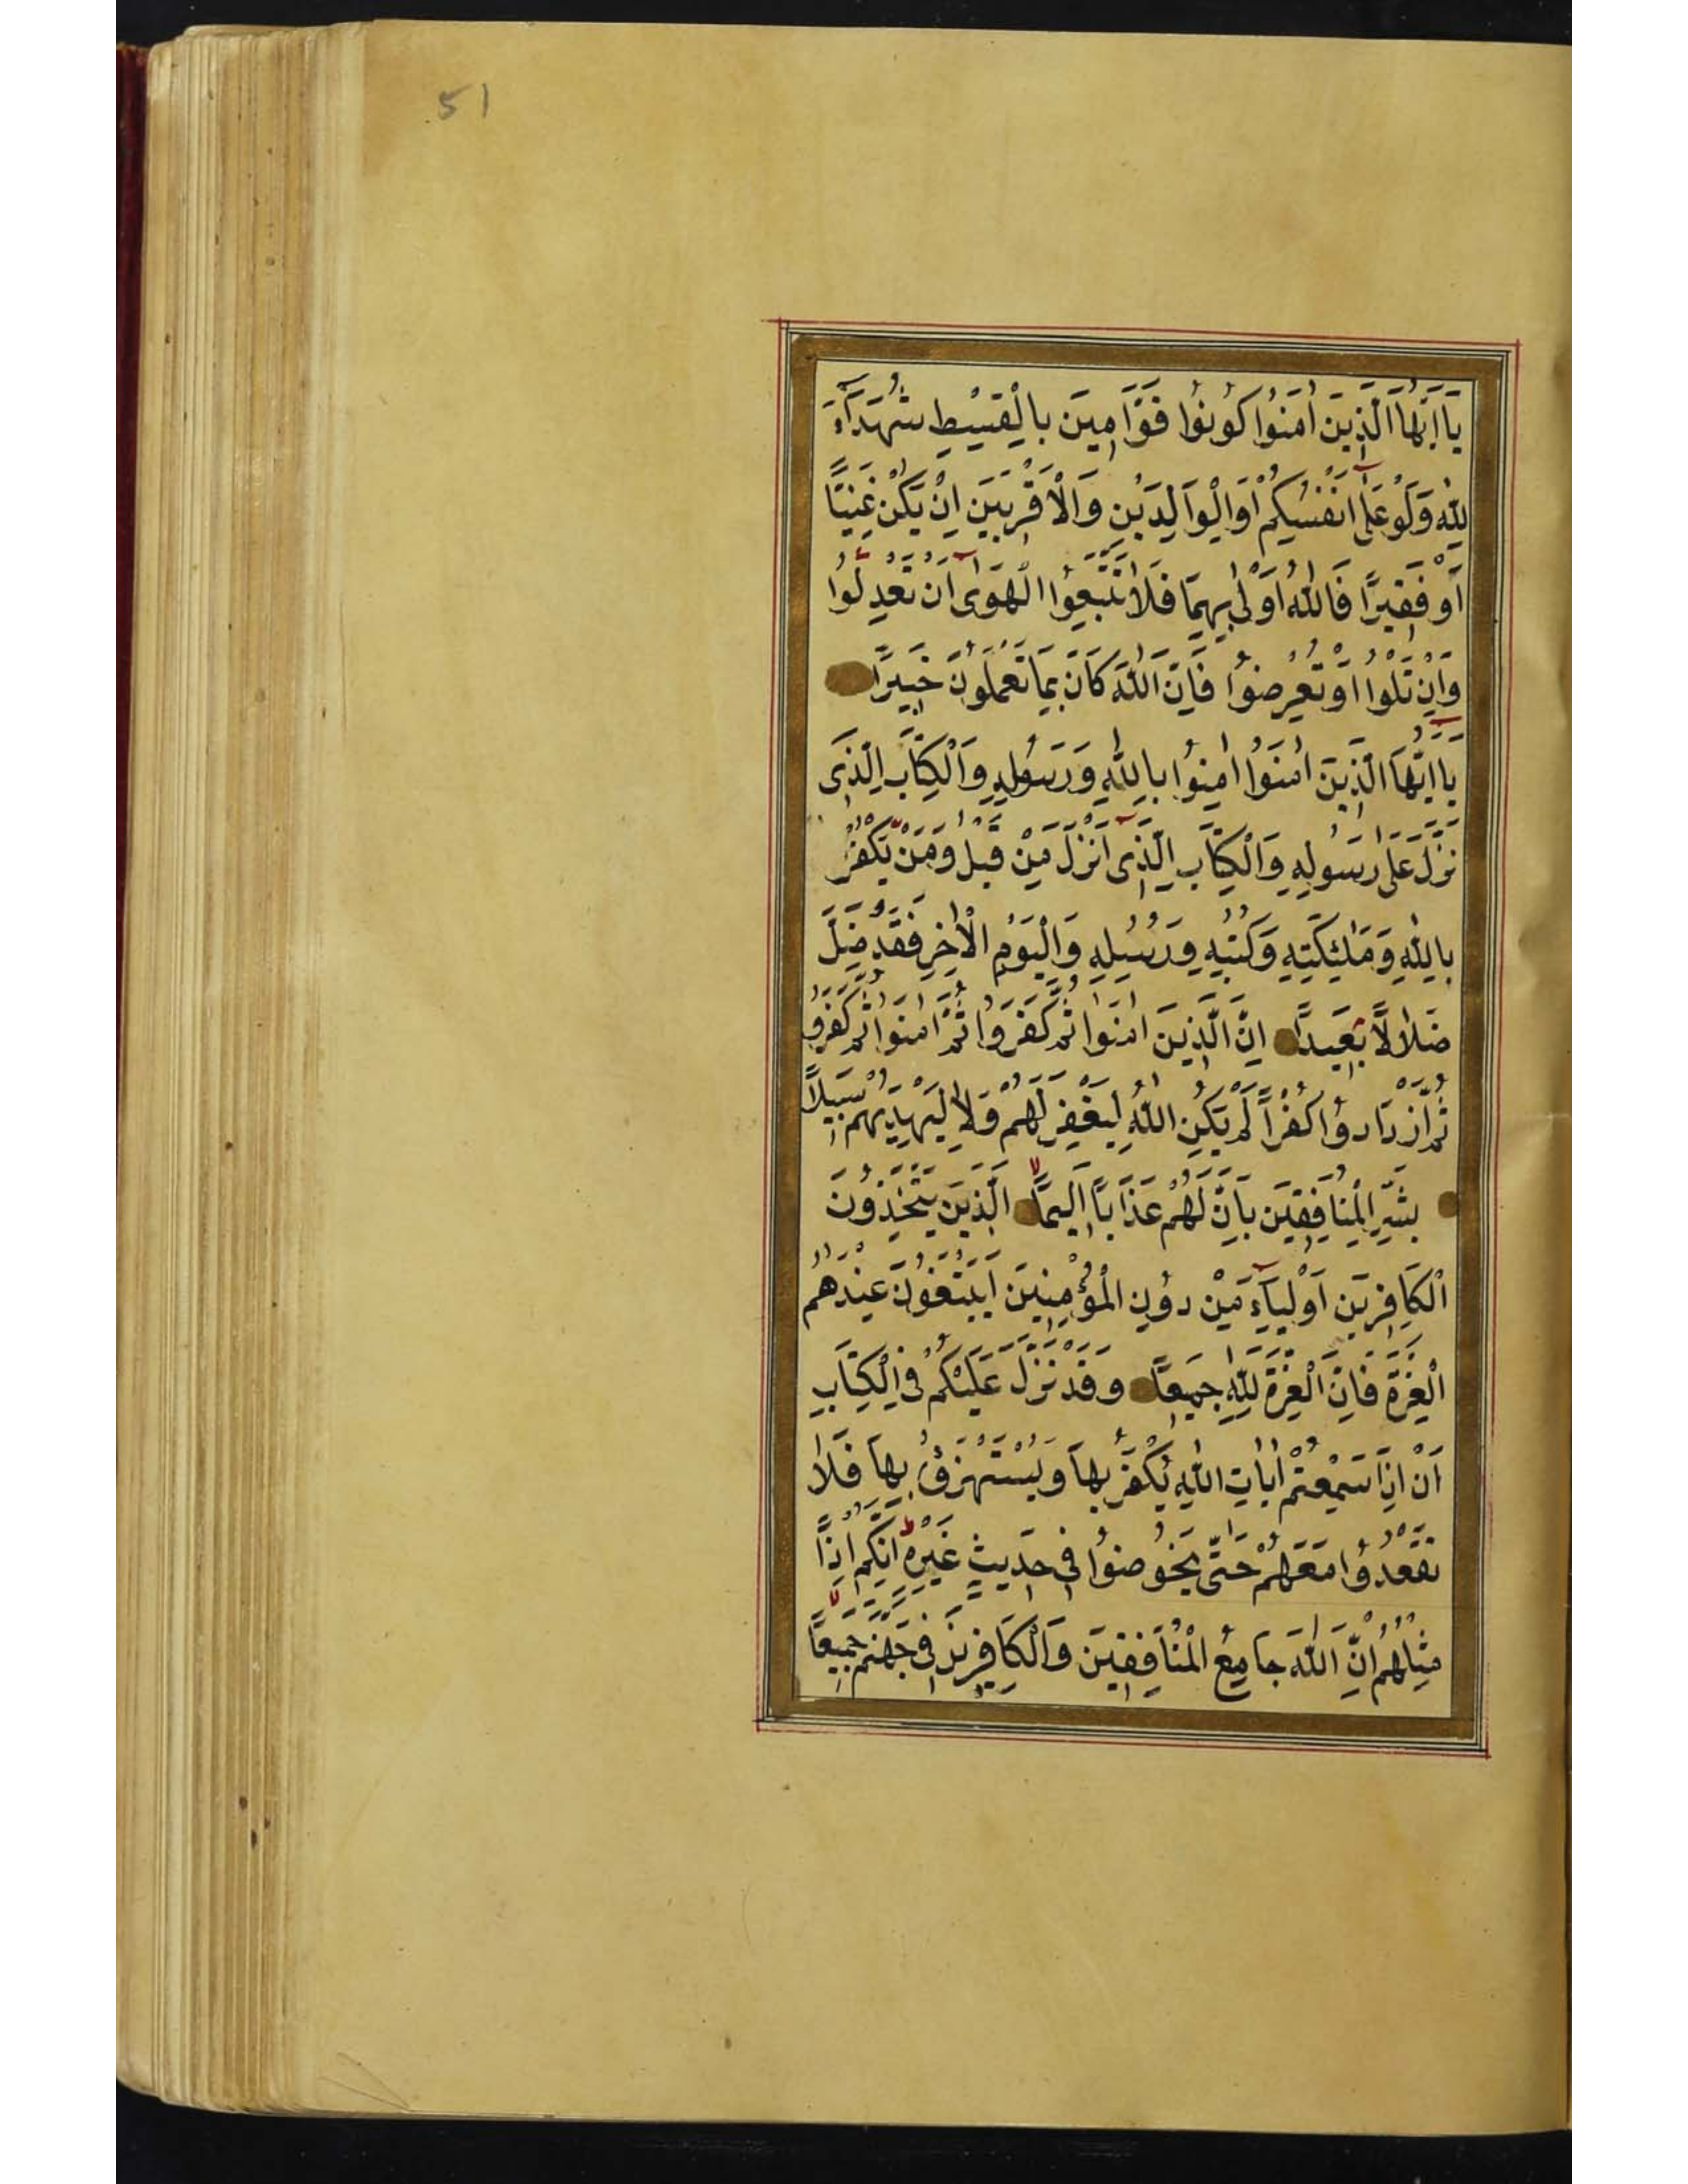 51
يَا اَيُّهَا الَّذِينَ اٰمَنُوا كُونُوا قَوَّامِينَ بِالْقِسْطِ شُهَدَآءَ
لِلّٰهِ وَلَوْ عَلٰٓى اَنْفُسِكُمْ اَوِالْوَالِدَيْنِ وَالْاَقْرَبِينَ اِنْ يَكُنْ غَنِيًّا
اَوْ فَقِيرًا فَاللّٰهُ اَوْلٰى بِهِمَا فَلَا تَتَّبِعُوا الْهَوٰٓى اَنْ تَعْدِلُوا
وَاِنْ تَلْوُٓا اَوْ تُعْرِضُوا فَاِنَّ اللّٰهَ كَانَ بِمَا تَعْمَلُونَ خَبِيرًا
يَٓا اَيُّهَا الَّذِينَ اٰمَنُٓوا اٰمِنُوا بِاللّٰهِ وَرَسُولِهِ وَالْكِتَابِ الَّذِى
نَزَّلَ عَلٰى رَسُولِهِ وَالْكِتَابِ الَّذِٓى اَنْزَلَ مِنْ قَبْلُ وَمَنْ يَكْفُرْ
بِاللّٰهِ وَمَلٰئِكَتِهِ وَكُتُبِهِ وَرُسُلِهِ وَالْيَوْمِ الْاٰخِرِ فَقَدْ ضَلَّ
ضَلَالًا بَعِيدًا اِنَّ الَّذِينَ اٰمَنُوا ثُمَّ كَفَرُوا ثُمَّ اٰمَنُوا ثُمَّ كَفَرُوا
ثُمَّ ازْدَادُوا كُفْرًا لَمْ يَكُنِ اللّٰهُ لِيَغْفِرَ لَهُمْ وَلَا لِيَهْدِيَهُمْ سَبِيلًا
بَشِّرِ الْمُنَافِقِينَ بِاَنَّ لَهُمْ عَذَابًا اَلِيمًا الَّذِينَ يَتَّخِذُونَ
الْكَافِرِينَ اَوْلِيَآءَ مِنْ دُونِ الْمُؤْمِنِينَ اَيَبْتَغُونَ عِنْدَهُمُ
الْعِزَّةَ فَاِنَّ الْعِزَّةَ لِلّٰهِ جَمِيعًا وَقَدْ نَزَّلَ عَلَيْكُمْ فِى الْكِتَابِ
اَنْ اِذَا سَمِعْتُمْ اٰيَاتِ اللّٰهِ يُكْفَرُ بِهَا وَيُسْتَهْزَؤُ بِهَا فَلَا
تَقْعُدُوا مَعَهُمْ حَتّٰى يَخُوضُوا فِى حَدِيثٍ غَيْرِهِ اِنَّكُمْ اِذًا
مِثْلُهُمْ اِنَّ اللّٰهَ جَامِعُ الْمُنَافِقِينَ وَالْكَافِرِينَ فِى جَهَنَّمَ جَمِيعًا